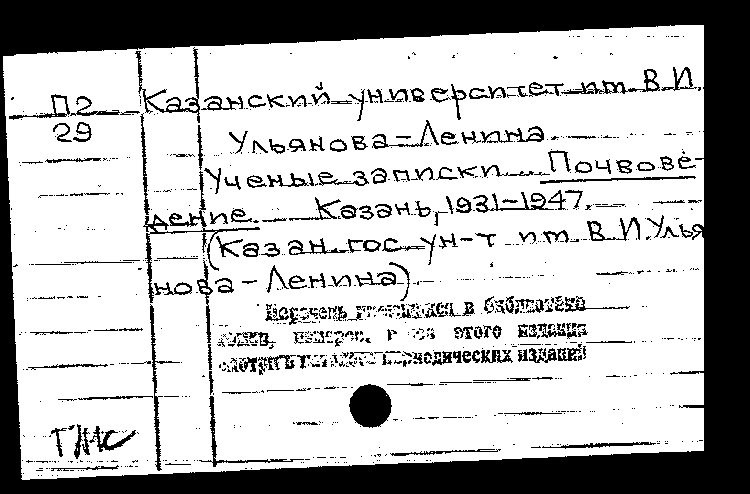 П2 Казанский университет им. В.И.
29 Ульянова-Ленина.
Ученые записки... Почвове-
дение. Казань, 1931-1947.
(Казан. гос. ун-т им. В.И. Улья
нова-Ленина)
Перечень в библиотеке
этого издания
периодических изданий